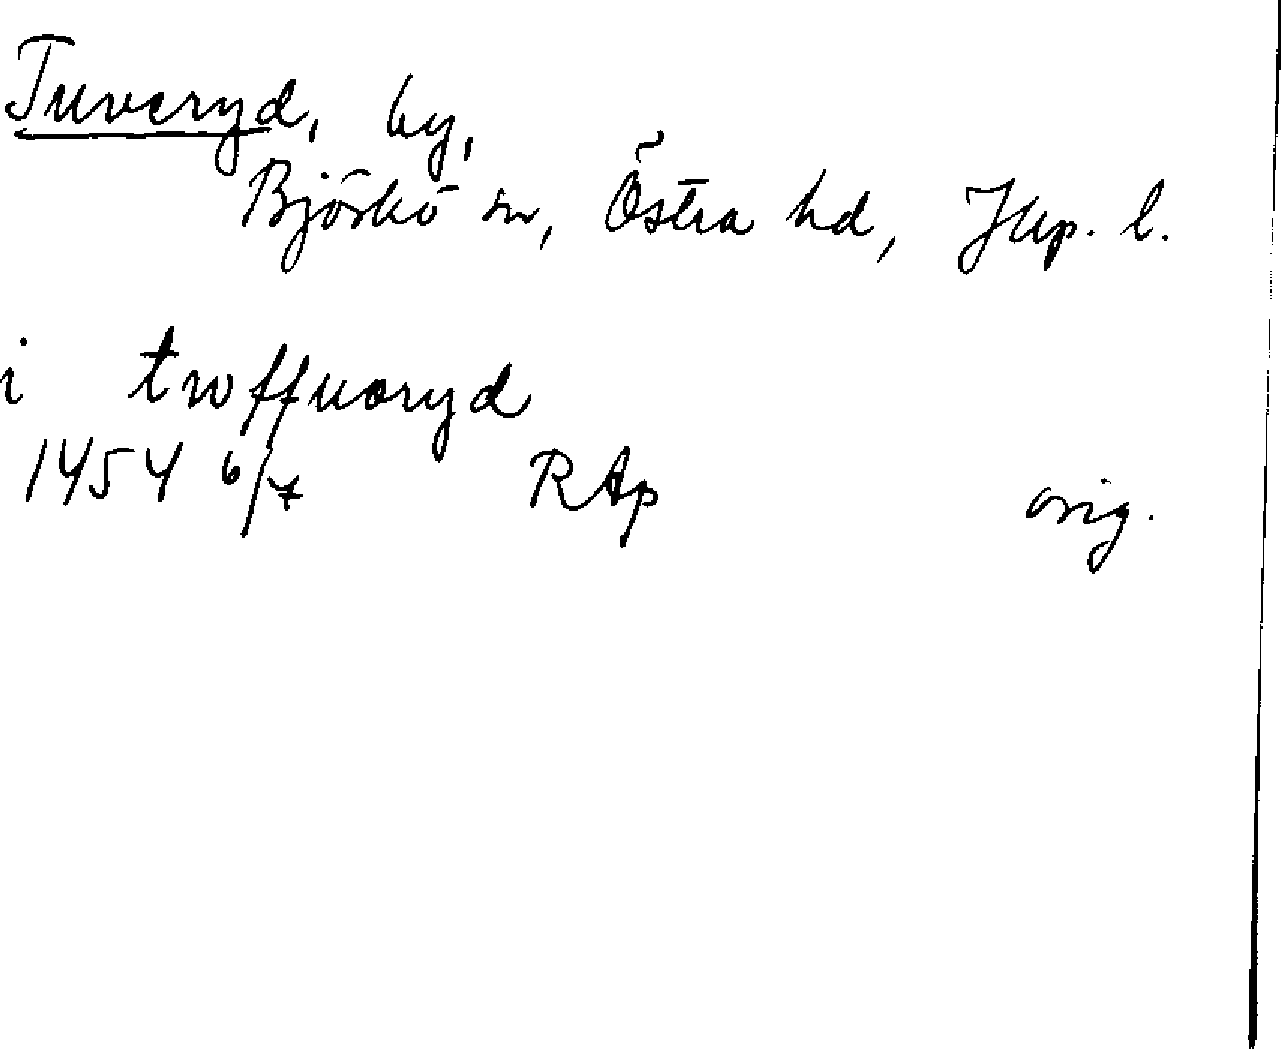 Tuveryd, by,
Björkö sn, Östra hd, Jkp. l.
i twffuoryd
1454 6/7 RAp orig.